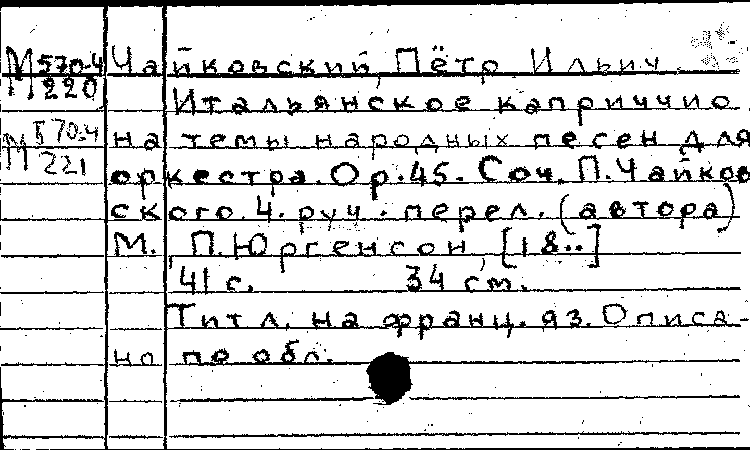 М 570-4 Чайковский, Пётр Ильич.
220 Итальянское каприччио
М 570-4 на темы народных песен для
221 оркестра. Ор. 45. Соч. П. Чайков
ского. 4. руч. перел. (автора)
М., П. Юргенсон, [18..]
41 с. 34 см.
Титл. на франц. яз. Описа-
но по обл.